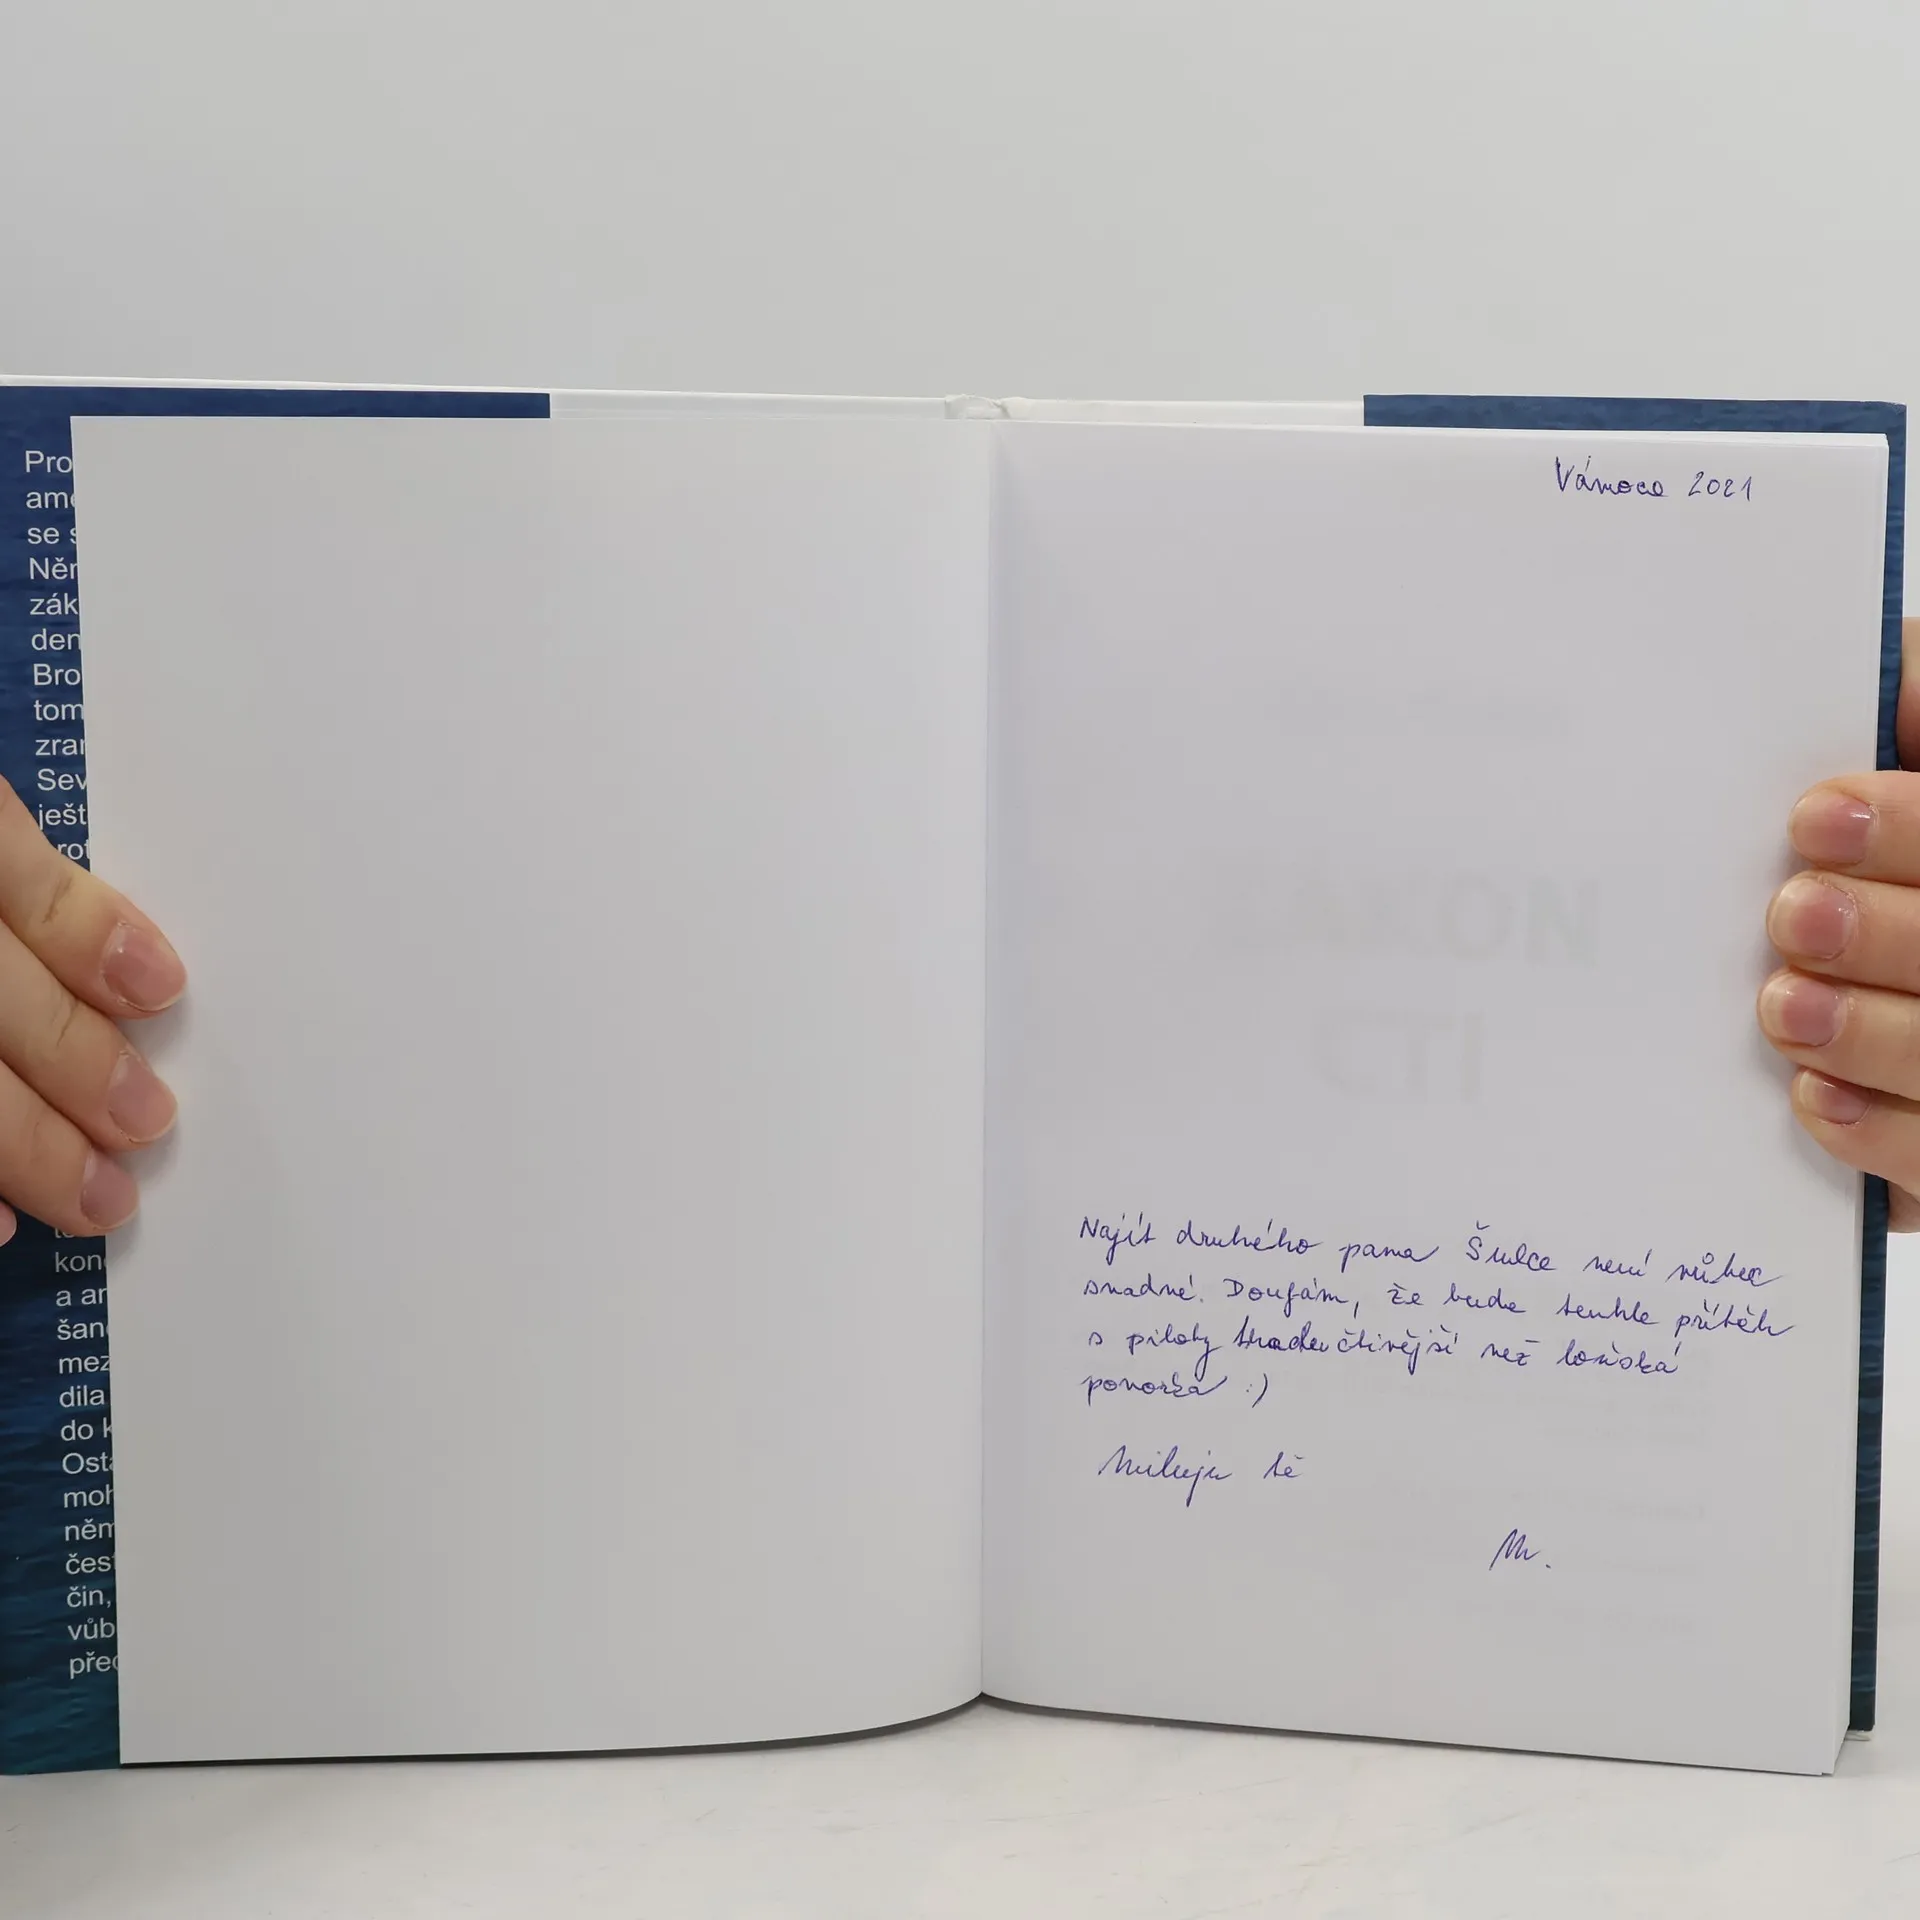 Pro
ame
se s
Něr
zák
den
Bro
tom
zrar
Sev
ješt
rot
kond
a ar
šanc
mez
dila
do k
Osta
moh
něm
čest
čin,
vůb
před
Vánoce 2021
Najít druhého pana Šulce není vůbec
snadné. Doufám, že bude tenhle příběh
s piloty čtivější než loňská
ponorka :)
Miluju tě
M.